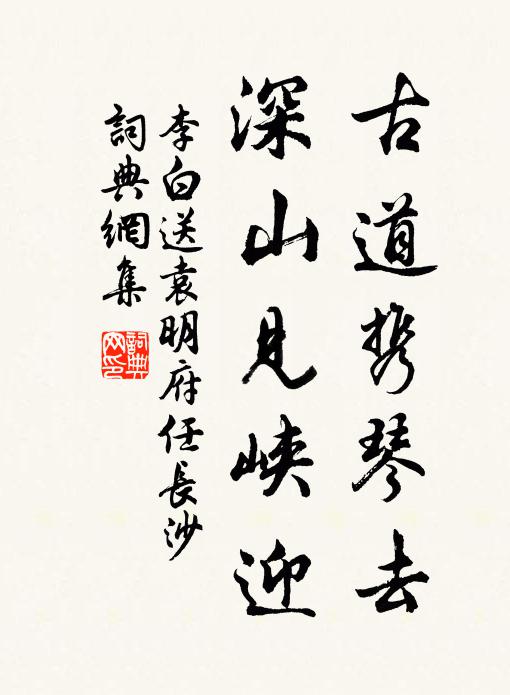 古道携琴去
深山見峡迎
李白送袁明府任長沙
詞典網集
詞典
网印